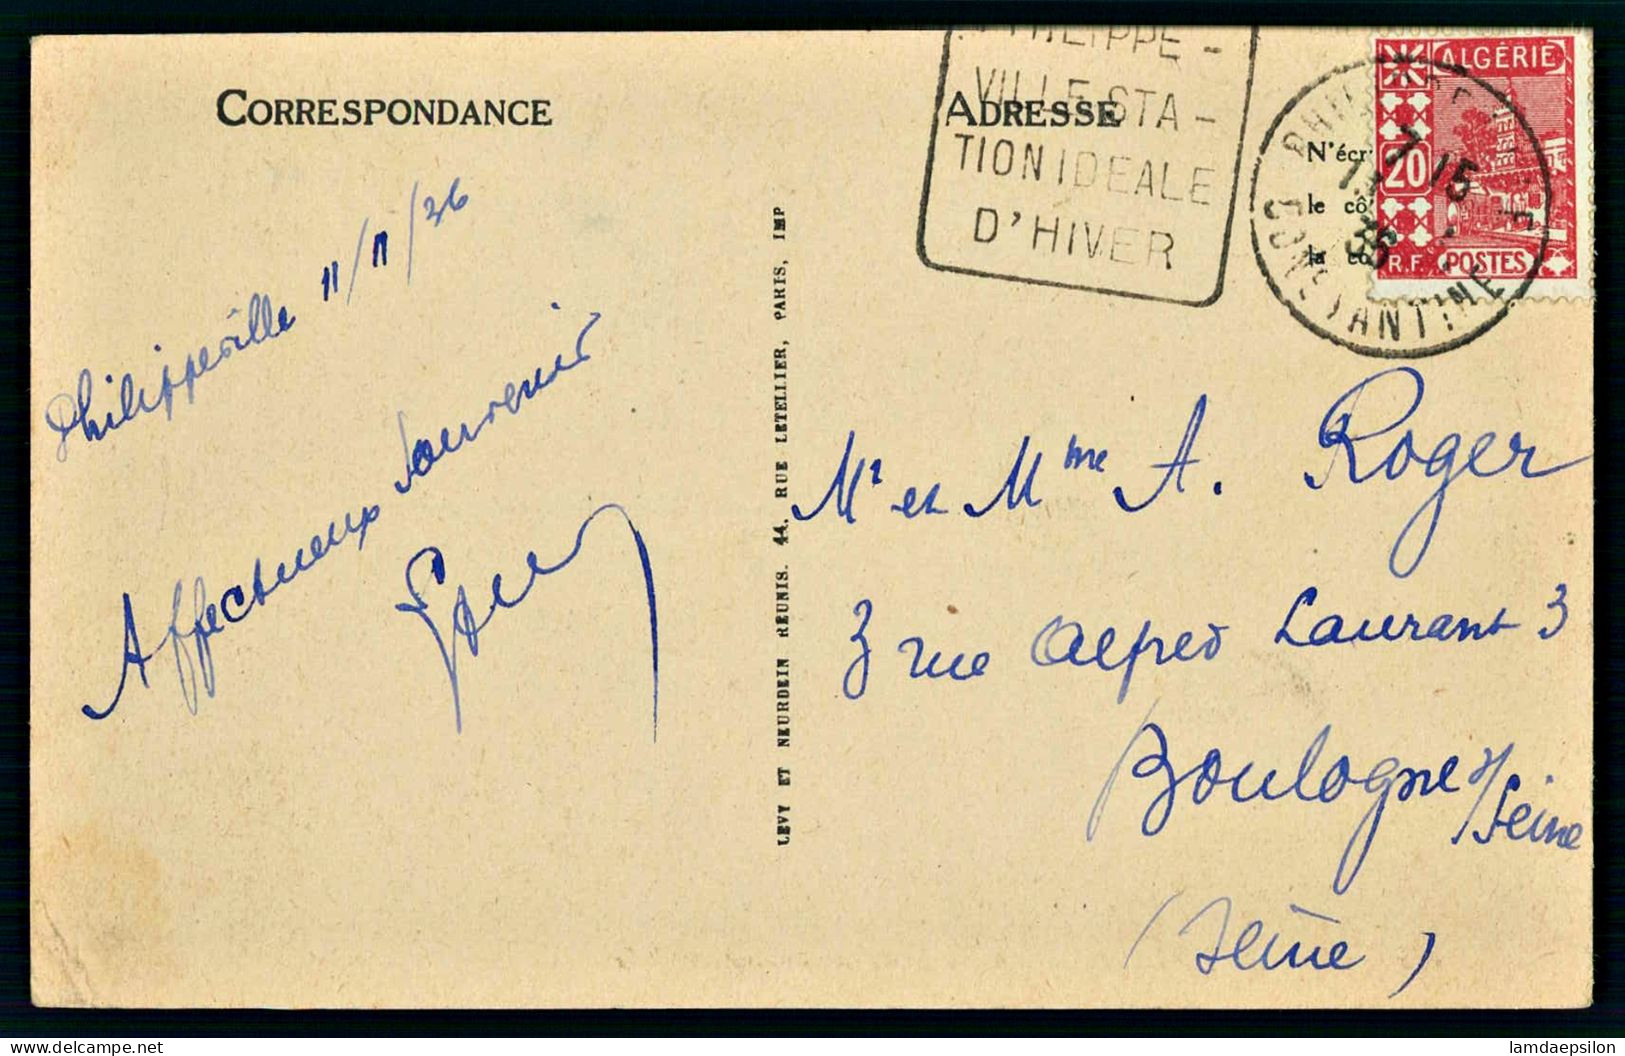 CORRESPONDANCE
ADRESSE
PHILIPPE -
VILLE STA -
TION IDEALE
D'HIVER
CONSTANTINE
7 15
36
ALGÉRIE
20
R.F POSTES
N'écr
le cô
la co
Philippeville 11/11/36
Affectueux souvenir
LEVY ET NEURDEIN REUNIS. 44. RUE LETELLIER, PARIS, IMP
Mr et Mme A. Roger
3 rue Alfred Laurant 3
Boulogne s/
Seine
(Seine)
lamdaepsilon
delcampe.net